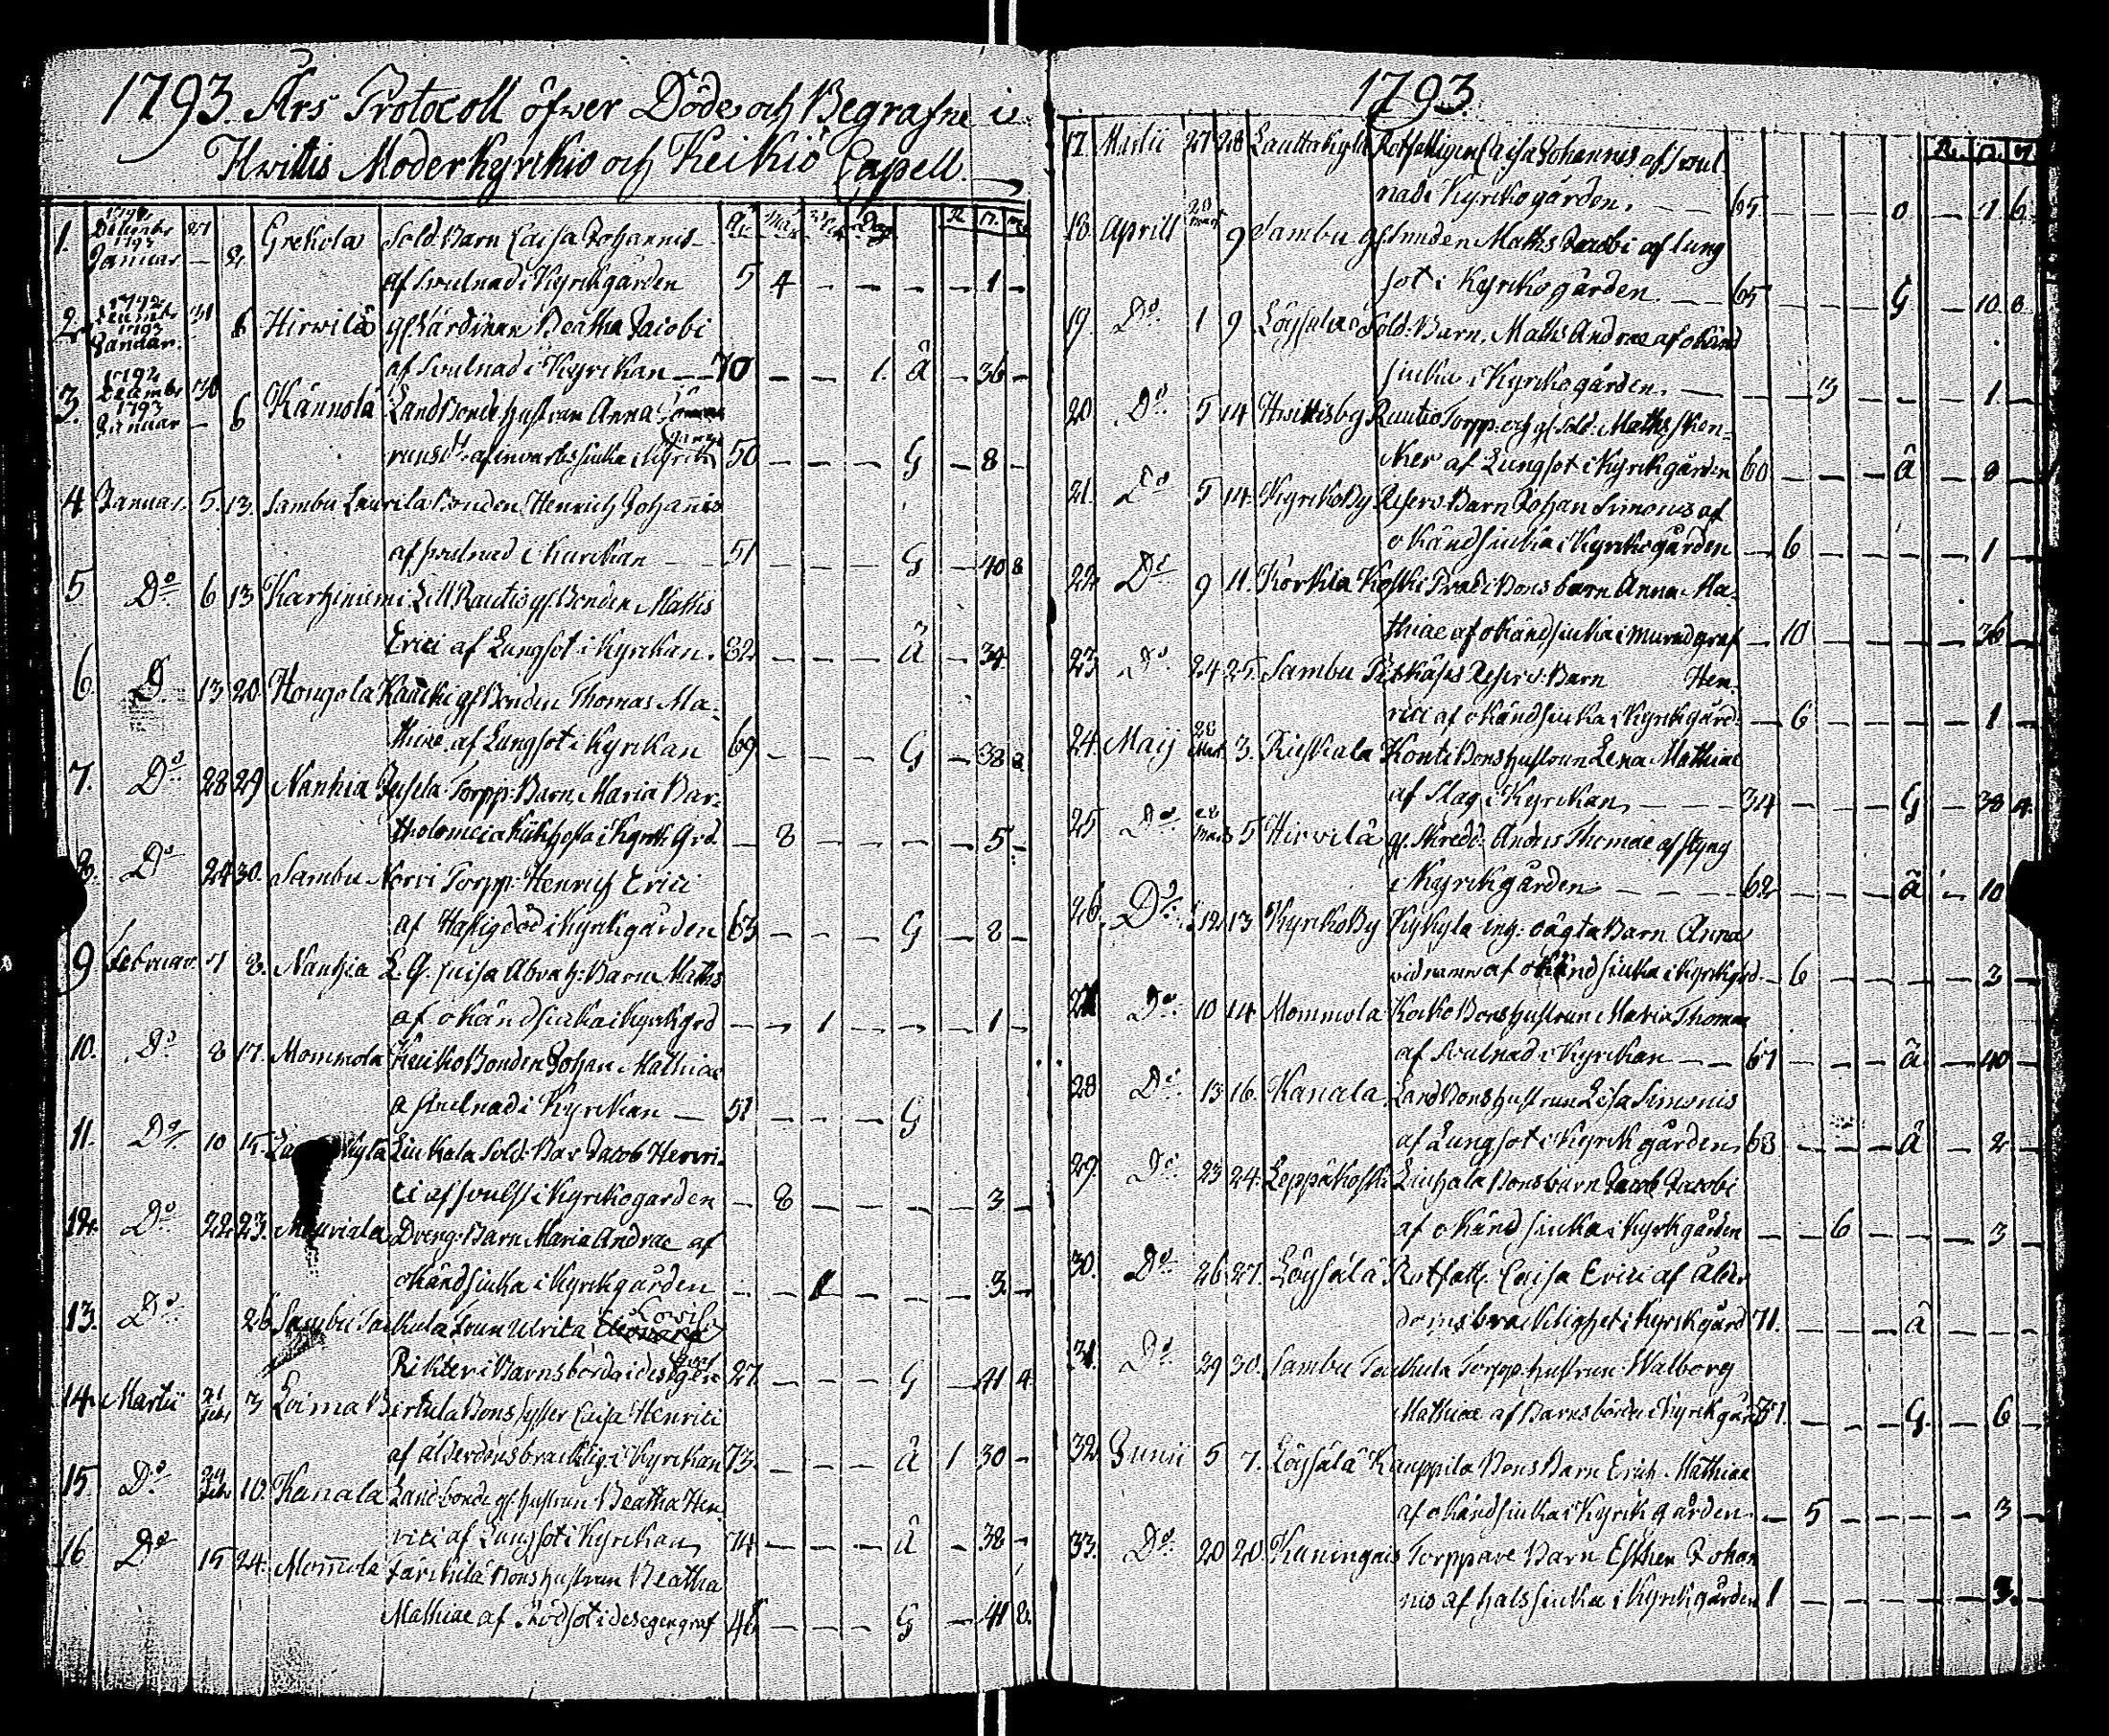 1793. Års Protocoll öfwer Döde och Begrafne i
Hwittis Moderkyrkio och Keikiö Capell.
1. 1792 Decembr 27
1793 Januar — 2. Grekola Sold. Barn Caisa Johannis
af Swulnad i Kyrkgården 5 4 — — — — 1 —
2. 1792 Decembr 31
1793 Januar. 6 Hirwilä gl. Värdinnan Beatha Jacobi
af Swulnad i Kyrckan — 70 — — 1. Å — 36 —
3. 1792 Decembr 30
1793 Januar — 6 Kännölä Landbonde hustrun Anna
af invärtes siuka i Kyrck 50 — — — G — 8 —
4 Januar. 5. 13. Sambu Laurila Bonden Henrich Johannis
af swulnad i Kyrckan — 51 — — — G — 40 8
5 Do 6 13 Karhiniemi Lill Rautio gl. Bonden Maths
Erici af Lungsot i Kyrckan. 82 — — — Å — 34
6. Do 13 20. Hongola Kaucki gl. Bonden Thomas Ma-
thiae af Lungsot i Kyrckan 69 — — — G — 38 8
7. Do 28 29 Nanhia Torpp. Barn, Maria Bar-
tholomei a Kikhosta i Kyrck Grd — 8 — — — — 5 —
8. Do 24 30. Sambu Norri Torpp. Henrich Erici
af Hastig död i Kyrckgården 63 — — — G — 8 —
9 Februar. 7 8. Nanhia Barn Maths
af okänd siucka i Kyrckgrd — — 1 — — — 1 —
10. Do 8 17. Mommola Heicko Bonden Johan Mathiae
a swulnad i Kyrckan — 51 — — — G
11. Do 10 15. Liuhala Sold. Bar Jacob Henri-
ci af swulst i Kyrckogården — 8 — — — — 3 —
12. Do 22 23. Mauriala Dreng. Barn Maria Andrae af
okänd siucka i Kyrckgården — — 1 — — — 3 —
13. Do 26 Sambu Frun Ulrica Lovis
Rikter i Barnsbörd i des egen graf 27 — — — G — 41 4
14. Martii 21 Febr 3 Loima Pirtula Bons syster Caisa Henrici
af ålderdomsbräcklig. i Kyrckan 73. — — — Å 1 30 —
15 Do 24 Febr 10. Kanala Landbonde gl. hustrun Beatha Hen-
rici af Lungsot i Kyrckan 74 — — — Å — 38 —
16 Do 15 24. Mommola Bons hustrun Beatha
Mathiae af Rödsot i des egen graf 48 — — — G — 41 8.
1793.
17. Martii 27 28 Lauttakylä Rotfattigen Caisa Johannis af swul-
nad i Kyrckogården. — 65 — — — o — 1 6
18. Aprill 29 Mart 9 Sambu gl. Maths Jacobi af lung
sot i Kyrckogården — 65 — — — G — 10 8
19. Do 1 9 Löysälä Sold. Barn, Maths Andrae af okänd
siucka i Kyrckogården. — — — 3 — — — 1. —
20 Do 5 14 Hwittisby Rautio Torpp. och gl. Sold. Maths
af Lungsot i Kyrckgården 60 — — — Å — 8 —
21. Do 5 14. Kyrckoby Reserv. Barn Johan Simonis af
okänd siucka i Kyrckogården — 6 — — — — 1 —
22 Do 9 11. Korkila Koski Barn Anna Ma-
thiae af okänd siucka i murad graf — 10 — — — — 36 —
23 Do 24 25. Sambu Reserv. Barn Hen-
rici af okänd siucka i Kyrckgård. — 6 — — — — 1 —
24. Maij 28 3. Riskala Konti Bons hustrun Lena Mathiae
af Slag i Kyrckan, — 34 — — — G — 38 4.
25 Do 28 5 Hirvilä gl. Skredd. Anders Thomae af styng
i Kyrckgården — 62 — — — Å — 10
26. Do 12 13 Kyrckoby Kylä Barn Anna
vid namn af okänd siucka i Kyrckgrd. — 6 — — — — 3 —
27 Do 10 14 Mommola Kocko Bons hustrun Maria Thomae
af Swulnad i Kyrckan — 67 — — — Å — 40 —
28 Do 13 16. Kanala Land Bons hustrun Lisa Simonis
af Lungsot i Kyrckgården 63 — — — Å — 2 —
29. Do 23 24. Leppäkoski Liuhala Bons barn Jacob Jacobi
af okänd siucka i Kyrckgården — — 6 — — — 3 —
30. Do 26 27. Löysälä Rotfatt. Caisa Erici af Ålder
doms bräcklighet i Kyrckgård 71. — — — Å — — —
31. Do 29 30. Sambu Torpp. hustrun Walborg
Mathiae af Barnsbörd i Kyrckgård 31. — — — G. — 6 —
32 Junii 5 7. Löysälä Kauppila Bons Barn Erich Mathiae
af okänd siucka i Kyrckgården — 5 — — — — 3 —
33. Do 20 20. Kuningais Torppare Barn Esther Johan
nis af halssiucka i Kyrckgården 1 — — — — — 3. —